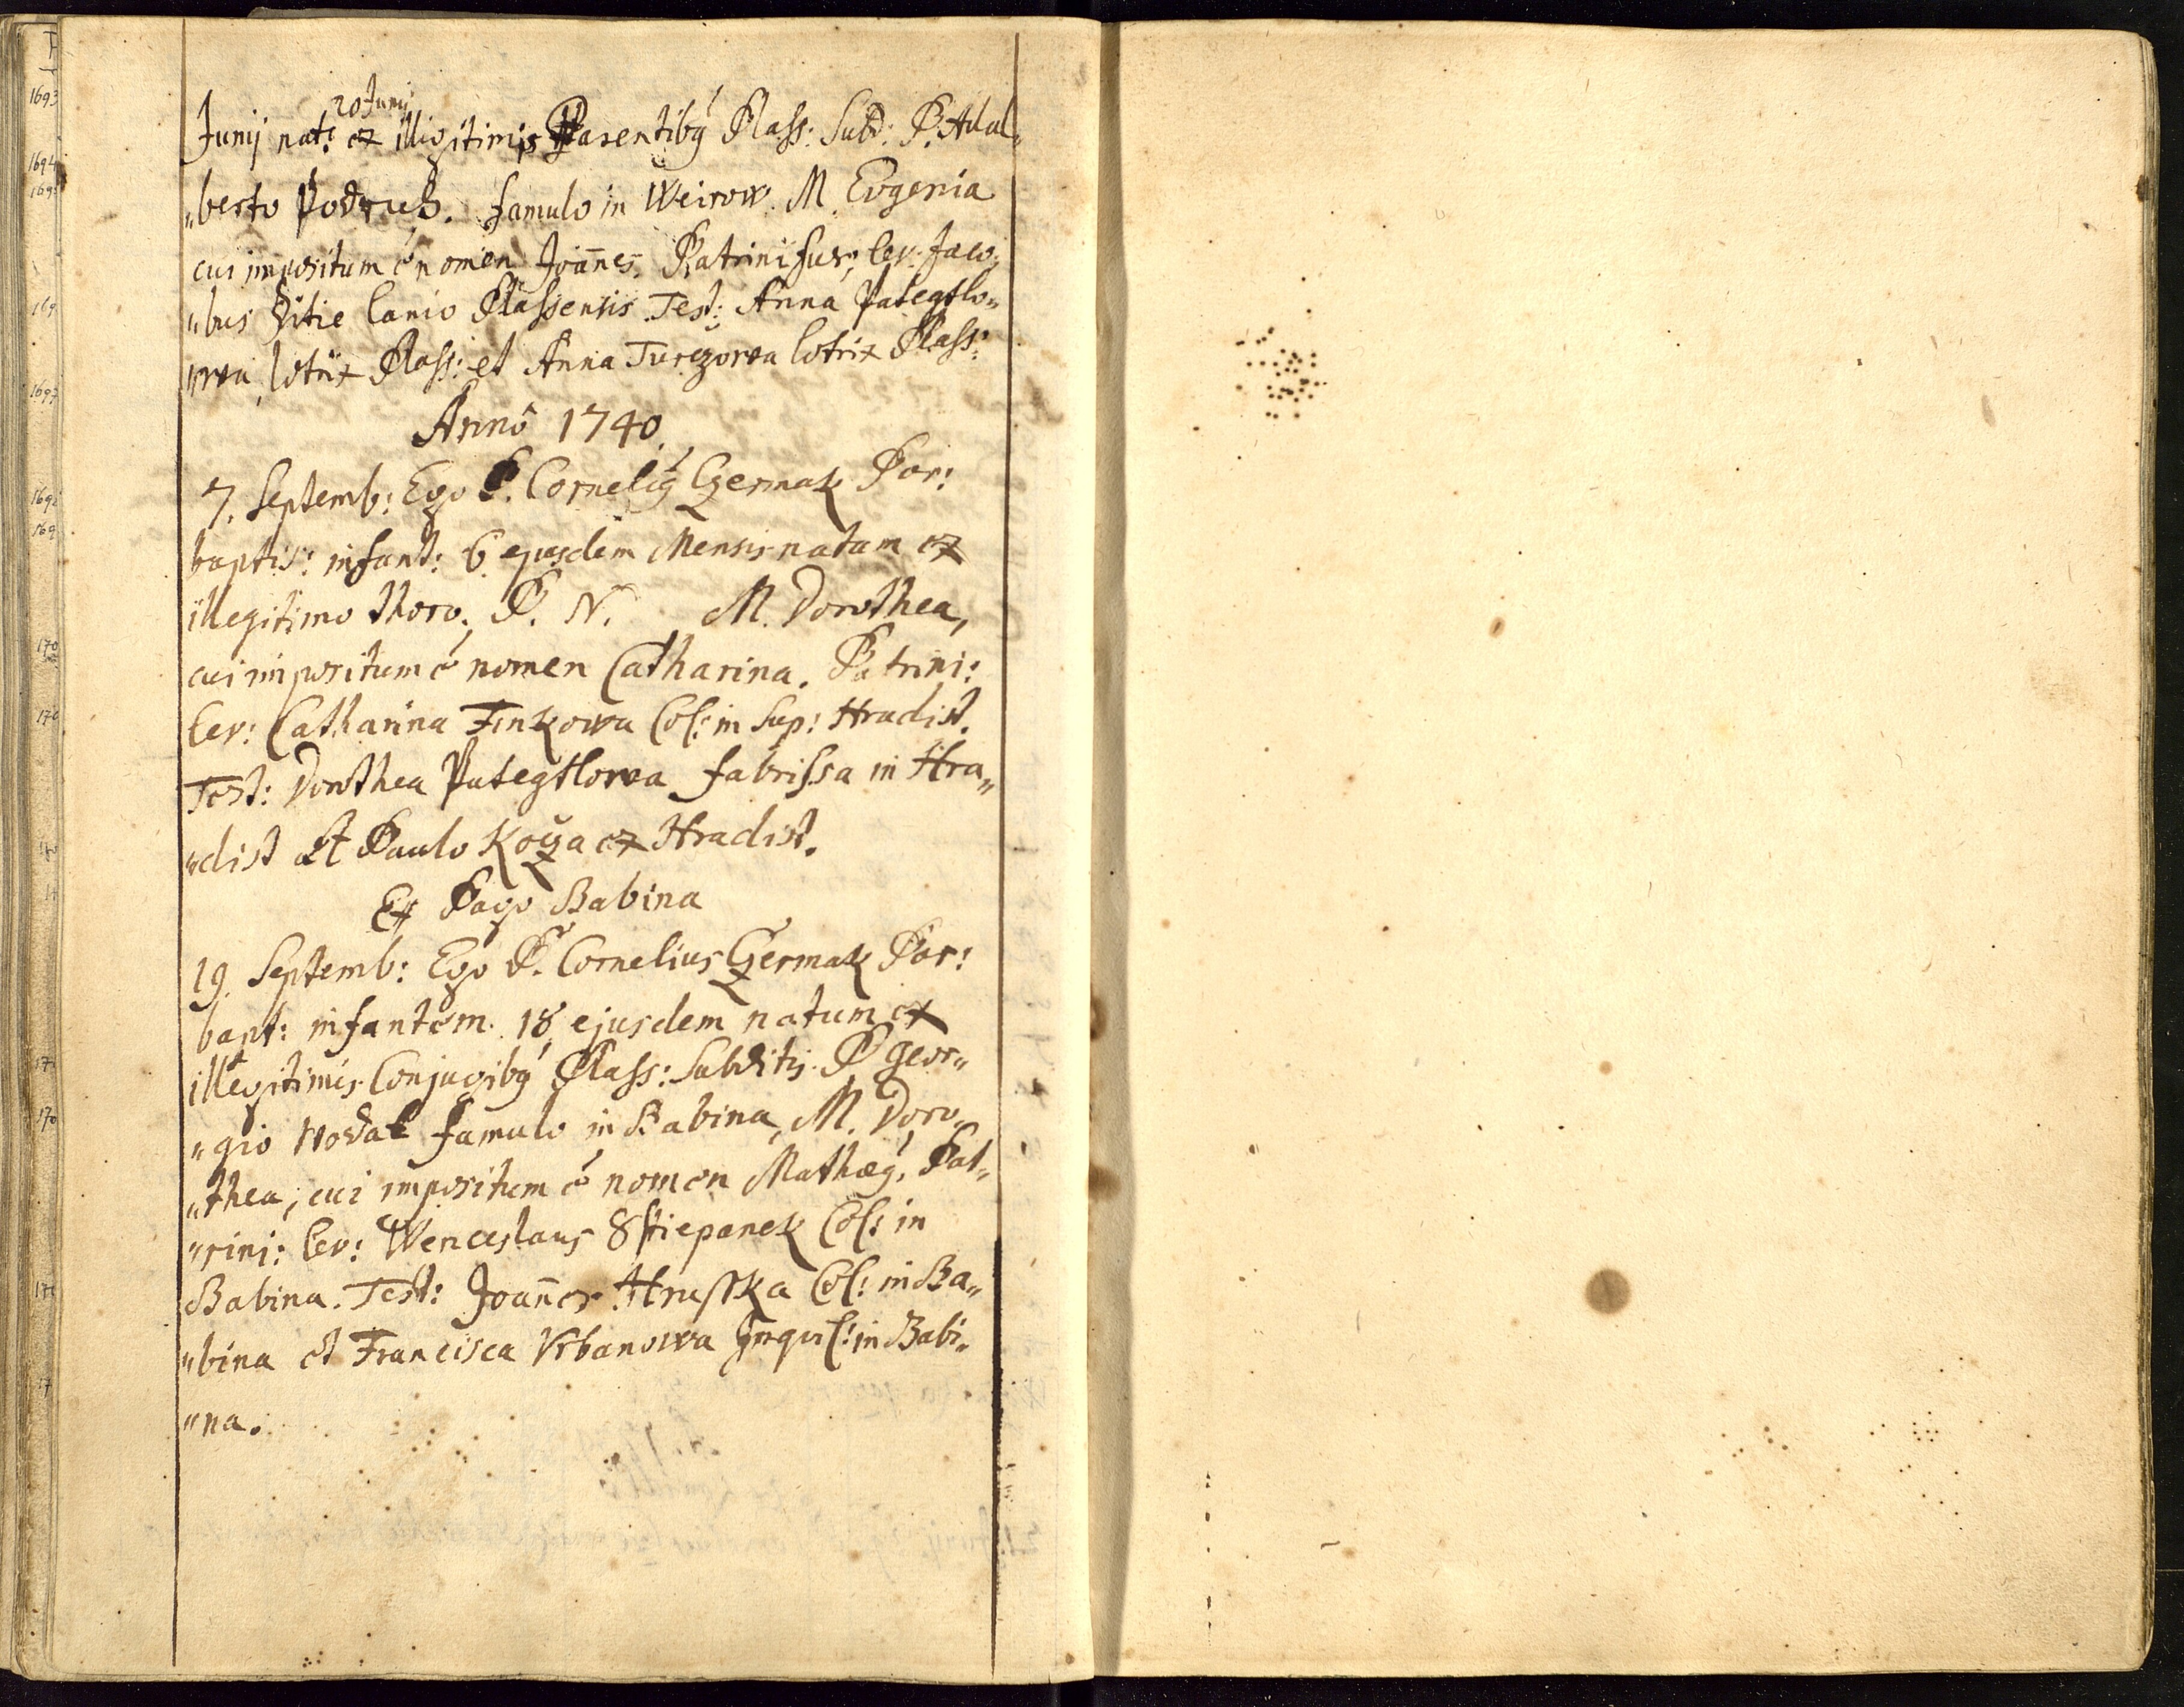 20 Junij
Junij nat: ex illigitimis Parentibg Plass: Subd: P. Adal„
„berto Podrub. famulo in Weirow. M. Evgenia
cui impositum é nomen Joannes. Patrini fuer: lev: Jaco„
„bus Zitie lanio Plassensis. Test: Anna Pategtlo„
„wa, lotrix Plass: et Anna Turczowa lotrix Plass:
Annô 1740.
7. Septemb: Ego P. Cornelig Czermak Par:
baptis: infant: 6. ejusdem Mensis natam ex
illegitimo thoro. P. N. M. Dorothea,
cui impositum é nomen Catharina. Patrini:
lev: Catharina Finkowa Col: in Sup: Hradist.
Test: Dorothea Pategtlowa fabrissa in Hra„
„dist et Paulo Koza ex Hradist.
Ex Pago Babina
19. Septemb: Ego P. Cornelius Czermak Par:
bapt: infantem. 18 ejusdem natum ex
illegitimis Conjugibg Plass: Subditis. P Geor„
„gio Nodal famulo in Babina, M. Doro„
„thea, cui impositum é nomen Mathæg. Pat„
„rini: lev: Wenceslaus Sstiepanek Col: in
Babina. Test: Joannes Hrusska Col: in Ba„
„bina et Francisca Vrbanowa Jnquil: in Babi„
„na.
1693
1694
169
1697
169
170
170
170